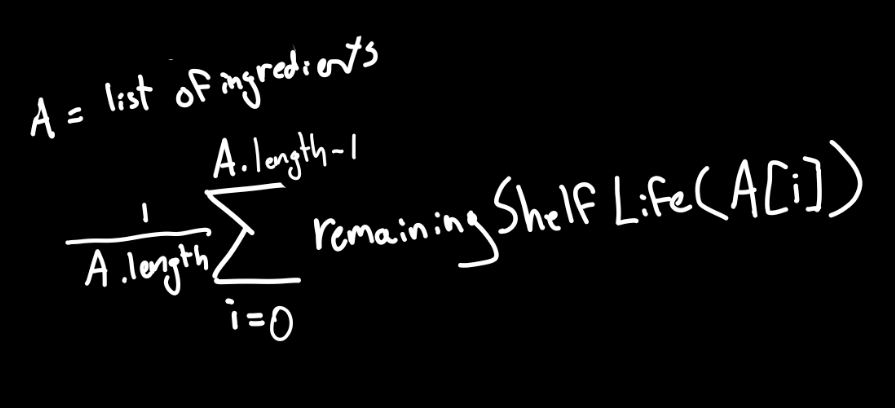 A = list of ingredients
A.length-1
1
A.length
∑ remainingShelfLife(A[i])
i=0